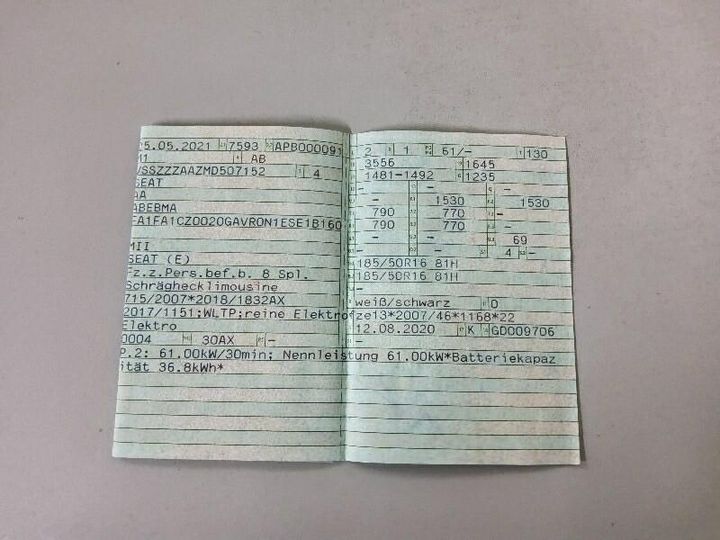 5.05.2021 7593 APB000091
M1 AB
VSSZZZAAZMD507152 4
SEAT
AA
ABEBMA
FA1FA1CZ0020GAVR0N1ESE1B160
MII
SEAT (E)
Fz.z.Pers.bef.b. 8 Spl.
Schräghecklimousine
715/2007*2018/1832AX
2017/1151;WLTP;reine Elektro
Elektro
0004 30AX -
P.2: 61.00kW/30min; Nennleistung 61.00kW*Batteriekapaz
ität 36.8kWh*
2 1 61/- 130
3556 1645
1481-1492 1235
- - -
- 1530 - 1530
790 770 -
790 770 -
- - 69
- - 4 -
185/50R16 81H
185/50R16 81H
-
weiß/schwarz 0
fze13*2007/46*1168*22
12.08.2020 K GD009706
-